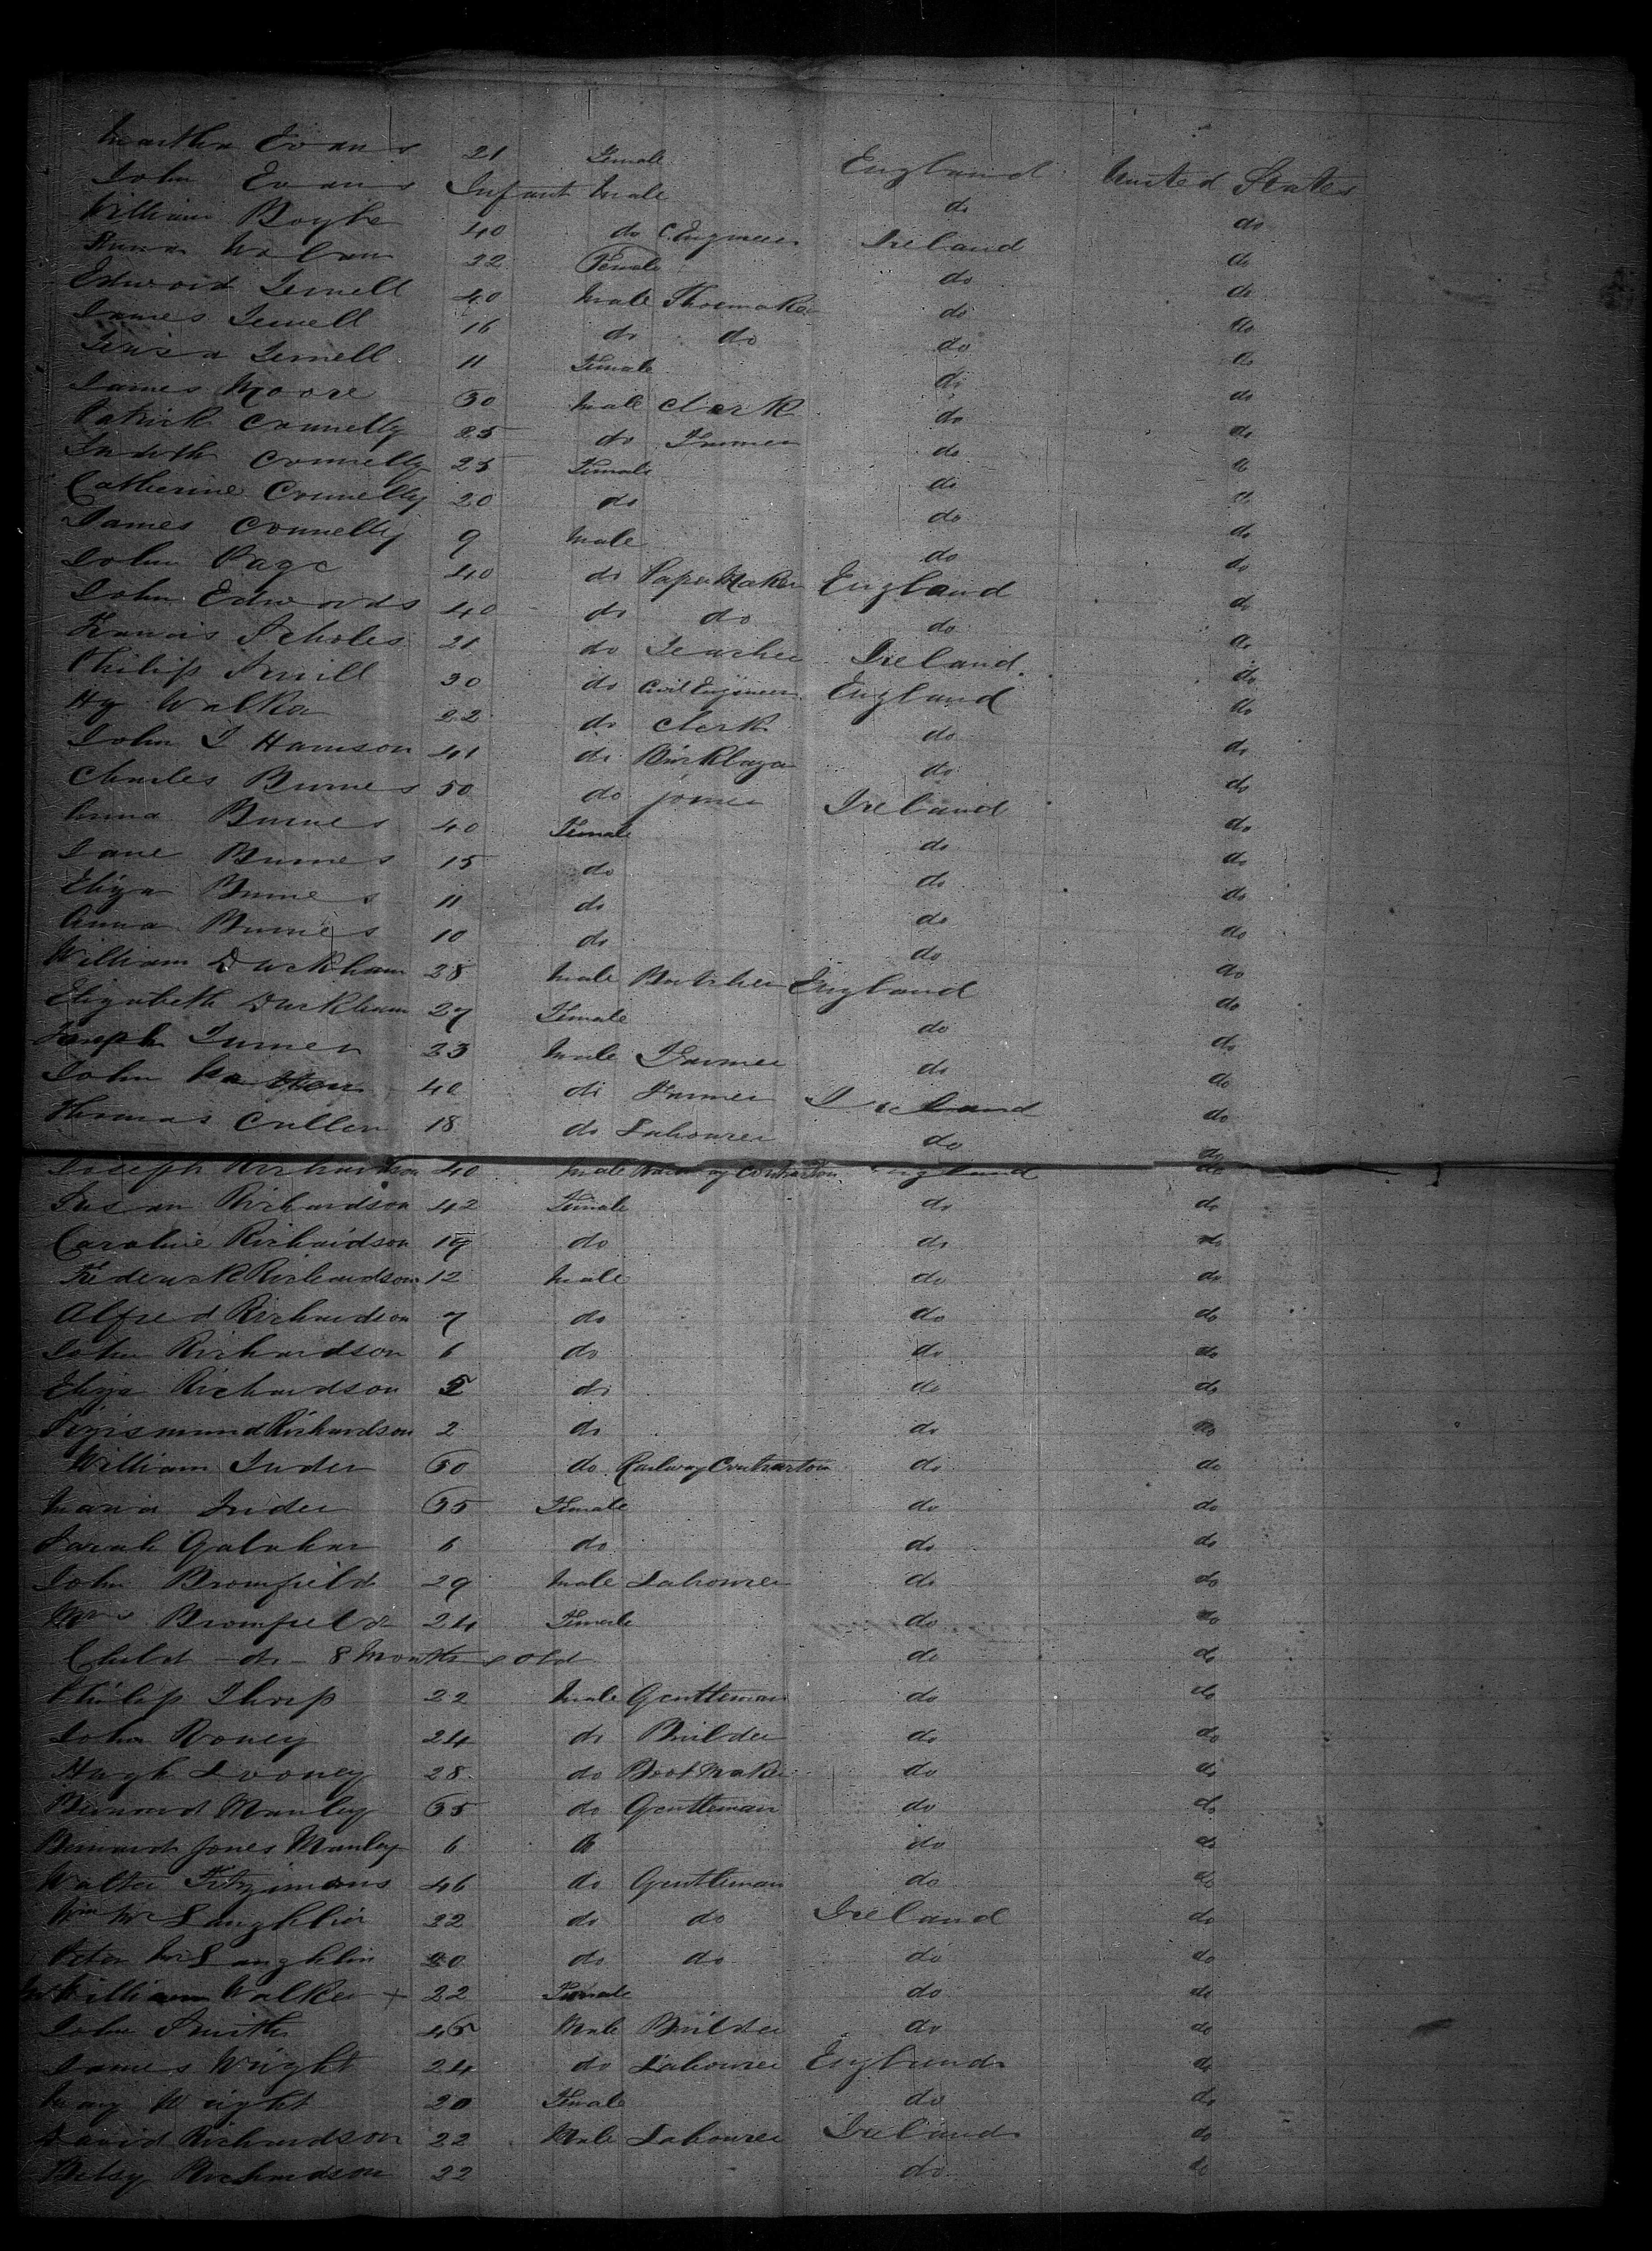 Martha Evans 21 Female England United States
John Evans Infant Male do do
William Boyle 40 do C. Engineer Ireland do
22 Female do do
Edward 40 Male Shoemaker do do
James 16 do do do do
11 Female do do
James Moore 30 Male Clerk do do
Patrick Connelly 25 do Farmer do do
Judith Connelly 25 Female do do
Catherine Connelly 20 do do do
James Connelly 9 Male do do
John Page 40 do Paper Maker England do
John Edwards 40 do do do do
Francis Scholes 21 do Teacher Ireland do
Philip 30 do Civil Engineer England do
Hy Walker 22 do Clerk do do
John T Harrison 41 do Bricklayer do do
Charles Burnes 50 do joiner Ireland do
Anna Burnes 40 Female do do
Jane Burnes 15 do do do
Eliza Burnes 11 do do do
Anna Burnes 10 do do do
William Duckham 28 Male Butcher England do
Elizabeth Duckham 27 Female do do
Joseph Turner 23 Male Farmer do do
John 40 do Farmer Ireland do
Thomas Cullen 18 do Labourer do do
Joseph Richardson 40 Male Railway Contractor England do
Susan Richardson 42 Female do do
Caroline Richardson 19 do do do
Frederick Richardson 12 Male do do
Alfred Richardson 7 do do do
John Richardson 6 do do do
Eliza Richardson 5 do do do
Sigismund Richardson 2 do do do
William Inder 50 do Railway Contractor do do
Maria Inder 35 Female do do
Sarah 6 do do do
John Bromfield 29 Male Labourer do do
Mrs Bromfield 24 Female do do
Child - do - 8 Months old do do
Philip Thorp 22 Male Gentleman do do
John Roney 24 do Builder do do
Hugh Looney 28 do Boot Maker do do
Bernard Manley 35 do Gentleman do do
Bernard Jones Manley 6 do do do
Walter Fitzimons 46 do Gentleman do do
Wm McLaughlin 22 do do Ireland do
Peter McLaughlin 20 do do do do
William Walker + 22 Female do do
John Smith 45 Male Builder do do
James Wright 24 do Labourer England do
Mary Wright 20 Female do do
David Richardson 22 Male Labourer Ireland do
Betsy Richardson 22 do do